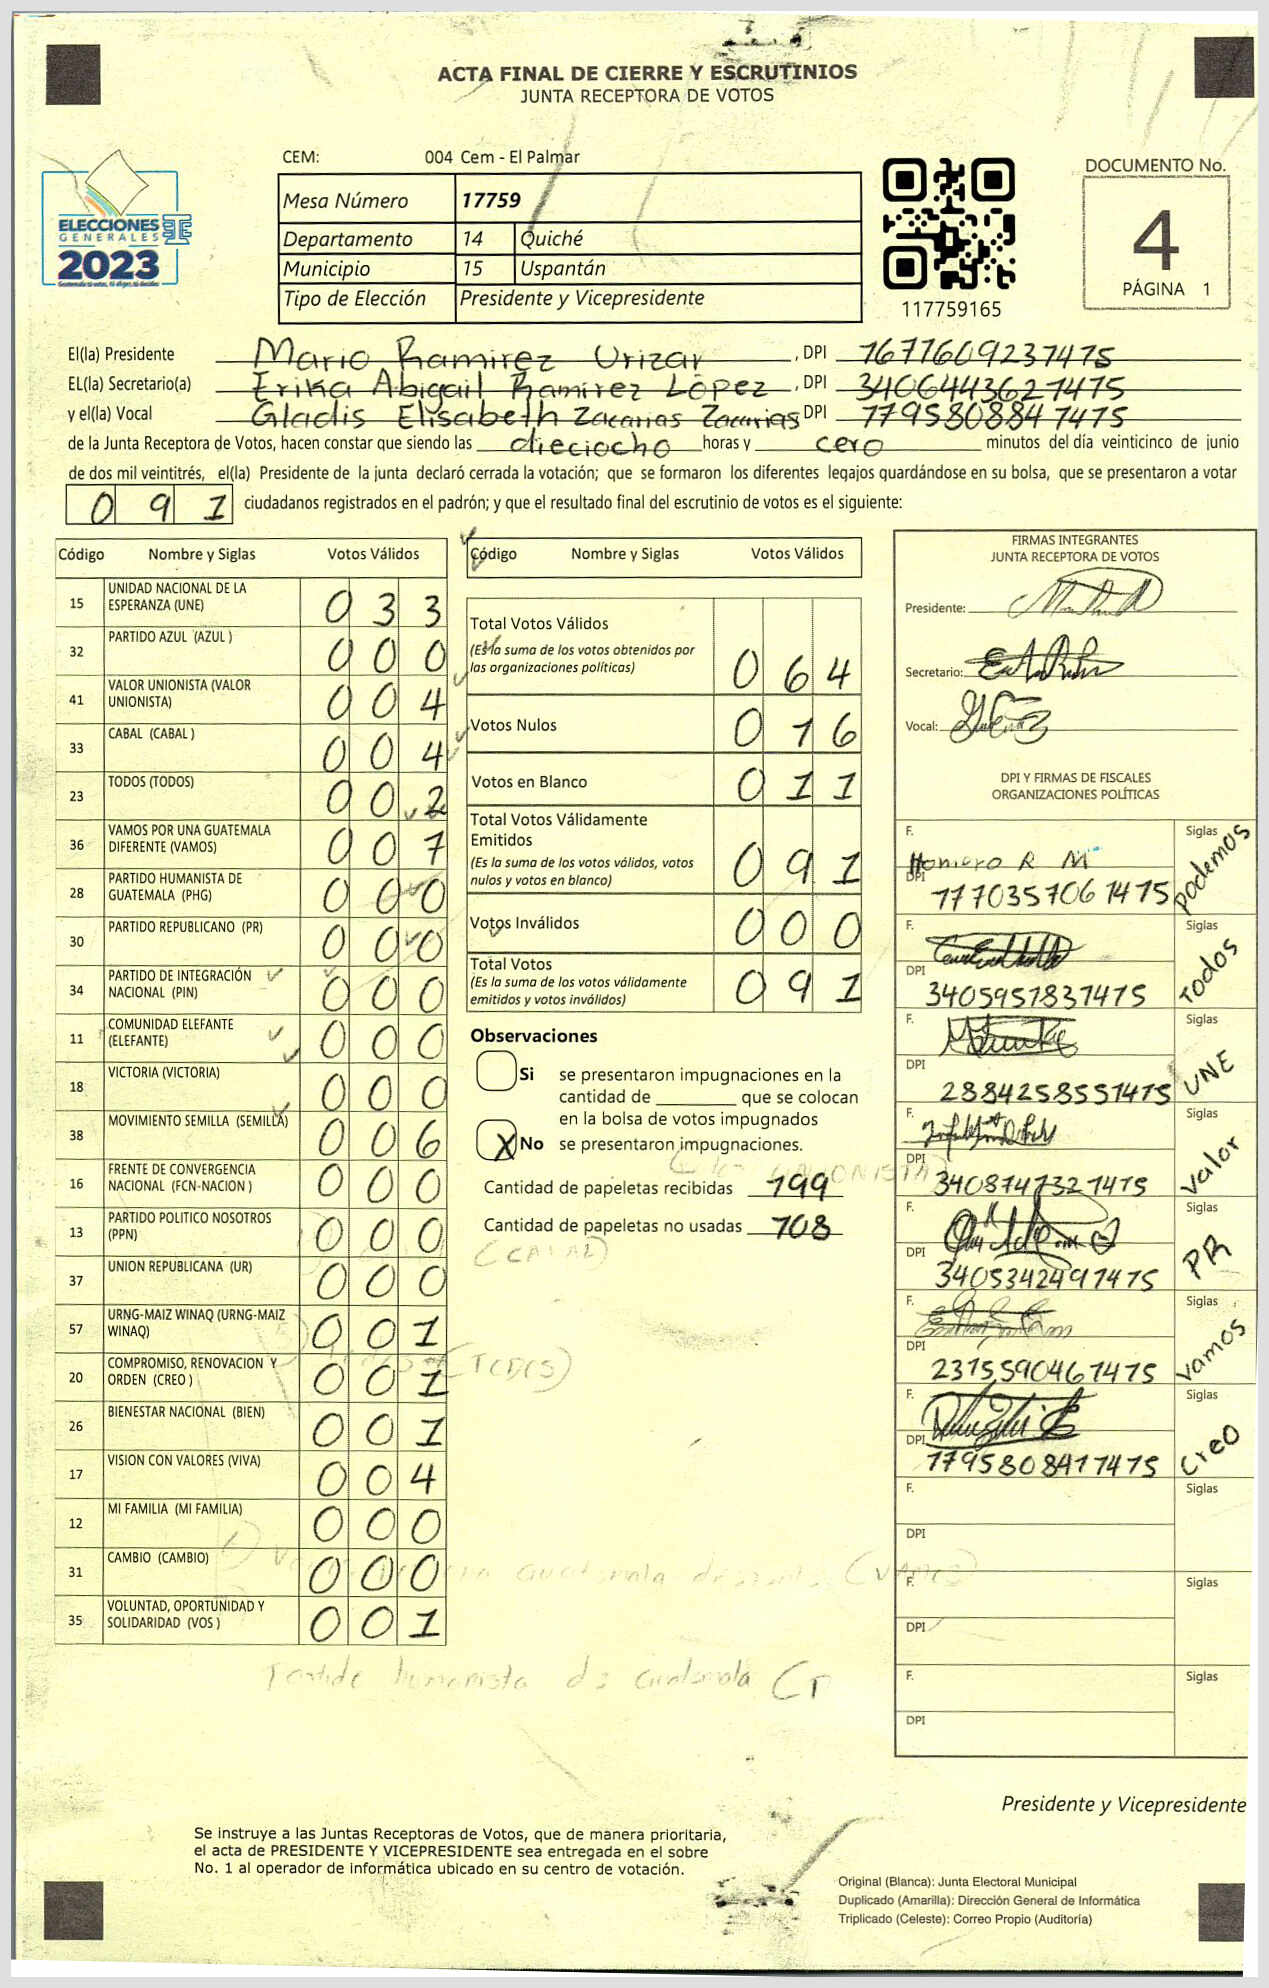 ACTA FINAL DE CIERRE Y ESCRUTINIOS
JUNTA RECEPTORA DE VOTOS
ELECCIONES
GENERALES
TSE
2023
CEM: 004 Cem - El Palmar
Mesa Número 17759
Departamento 14 Quiché
Municipio 15 Uspantán
Tipo de Elección Presidente y Vicepresidente
117759165
DOCUMENTO No.
4
PÁGINA 1
El(la) Presidente Mario Ramirez Urizar , DPI 1677609237475
EL(la) Secretario(a) Erika Abigail Ramirez López , DPI 3406443621475
y el(la) Vocal Gladis Elisabeth Zacarias Zacarias DPI 7795808847475
de la Junta Receptora de Votos, hacen constar que siendo las dieciocho horas y cero minutos del día veinticinco de junio
de dos mil veintitrés, el(la) Presidente de la junta declaró cerrada la votación; que se formaron los diferentes legajos quardándose en su bolsa, que se presentaron a votar
0 9 1 ciudadanos registrados en el padrón; y que el resultado final del escrutinio de votos es el siguiente:
Código Nombre y Siglas Votos Válidos
15 UNIDAD NACIONAL DE LA ESPERANZA (UNE) 0 3 3
32 PARTIDO AZUL (AZUL ) 0 0 0
41 VALOR UNIONISTA (VALOR UNIONISTA) 0 0 4
33 CABAL (CABAL ) 0 0 4
23 TODOS (TODOS) 0 0 2
36 VAMOS POR UNA GUATEMALA DIFERENTE (VAMOS) 0 0 7
28 PARTIDO HUMANISTA DE GUATEMALA (PHG) 0 0 0
30 PARTIDO REPUBLICANO (PR) 0 0 0
34 PARTIDO DE INTEGRACIÓN NACIONAL (PIN) 0 0 0
11 COMUNIDAD ELEFANTE (ELEFANTE) 0 0 0
18 VICTORIA (VICTORIA) 0 0 0
38 MOVIMIENTO SEMILLA (SEMILLA) 0 0 6
16 FRENTE DE CONVERGENCIA NACIONAL (FCN-NACION ) 0 0 0
13 PARTIDO POLITICO NOSOTROS (PPN) 0 0 0
37 UNION REPUBLICANA (UR) 0 0 0
57 URNG-MAIZ WINAQ (URNG-MAIZ WINAQ) 0 0 1
20 COMPROMISO, RENOVACION Y ORDEN (CREO ) 0 0 1
26 BIENESTAR NACIONAL (BIEN) 0 0 1
17 VISION CON VALORES (VIVA) 0 0 4
12 MI FAMILIA (MI FAMILIA) 0 0 0
31 CAMBIO (CAMBIO) 0 0 0
35 VOLUNTAD, OPORTUNIDAD Y SOLIDARIDAD (VOS ) 0 0 1
Código Nombre y Siglas Votos Válidos
Total Votos Válidos
(Es la suma de los votos obtenidos por
las organizaciones políticas) 0 6 4
Votos Nulos 0 1 6
Votos en Blanco 0 1 1
Total Votos Válidamente
Emitidos
(Es la suma de los votos válidos, votos
nulos y votos en blanco) 0 9 1
Votos Inválidos 0 0 0
Total Votos
(Es la suma de los votos válidamente
emitidos y votos inválidos) 0 9 1
Observaciones
Si se presentaron impugnaciones en la
cantidad de ________ que se colocan
en la bolsa de votos impugnados
X No se presentaron impugnaciones.
Cantidad de papeletas recibidas 799
Cantidad de papeletas no usadas 708
FIRMAS INTEGRANTES
JUNTA RECEPTORA DE VOTOS
Presidente:
Secretario:
Vocal:
DPI Y FIRMAS DE FISCALES
ORGANIZACIONES POLÍTICAS
F. Homero R M Siglas Podemos
DPI 7770357061475
F. Siglas Todos
DPI 3405957837475
F. Siglas UNE
DPI 2884258551475
F. Siglas Valor
DPI 3408747321475
F. Siglas PR
DPI 3405342497475
F. Siglas Vamos
DPI 2375590467475
F. Siglas CreO
DPI 7795808417475
F. Siglas
DPI
F. Siglas
DPI
F. Siglas
DPI
Presidente y Vicepresidente
Se instruye a las Juntas Receptoras de Votos, que de manera prioritaria,
el acta de PRESIDENTE Y VICEPRESIDENTE sea entregada en el sobre
No. 1 al operador de informática ubicado en su centro de votación.
Original (Blanca): Junta Electoral Municipal
Duplicado (Amarilla): Dirección General de Informática
Triplicado (Celeste): Correo Propio (Auditoría)